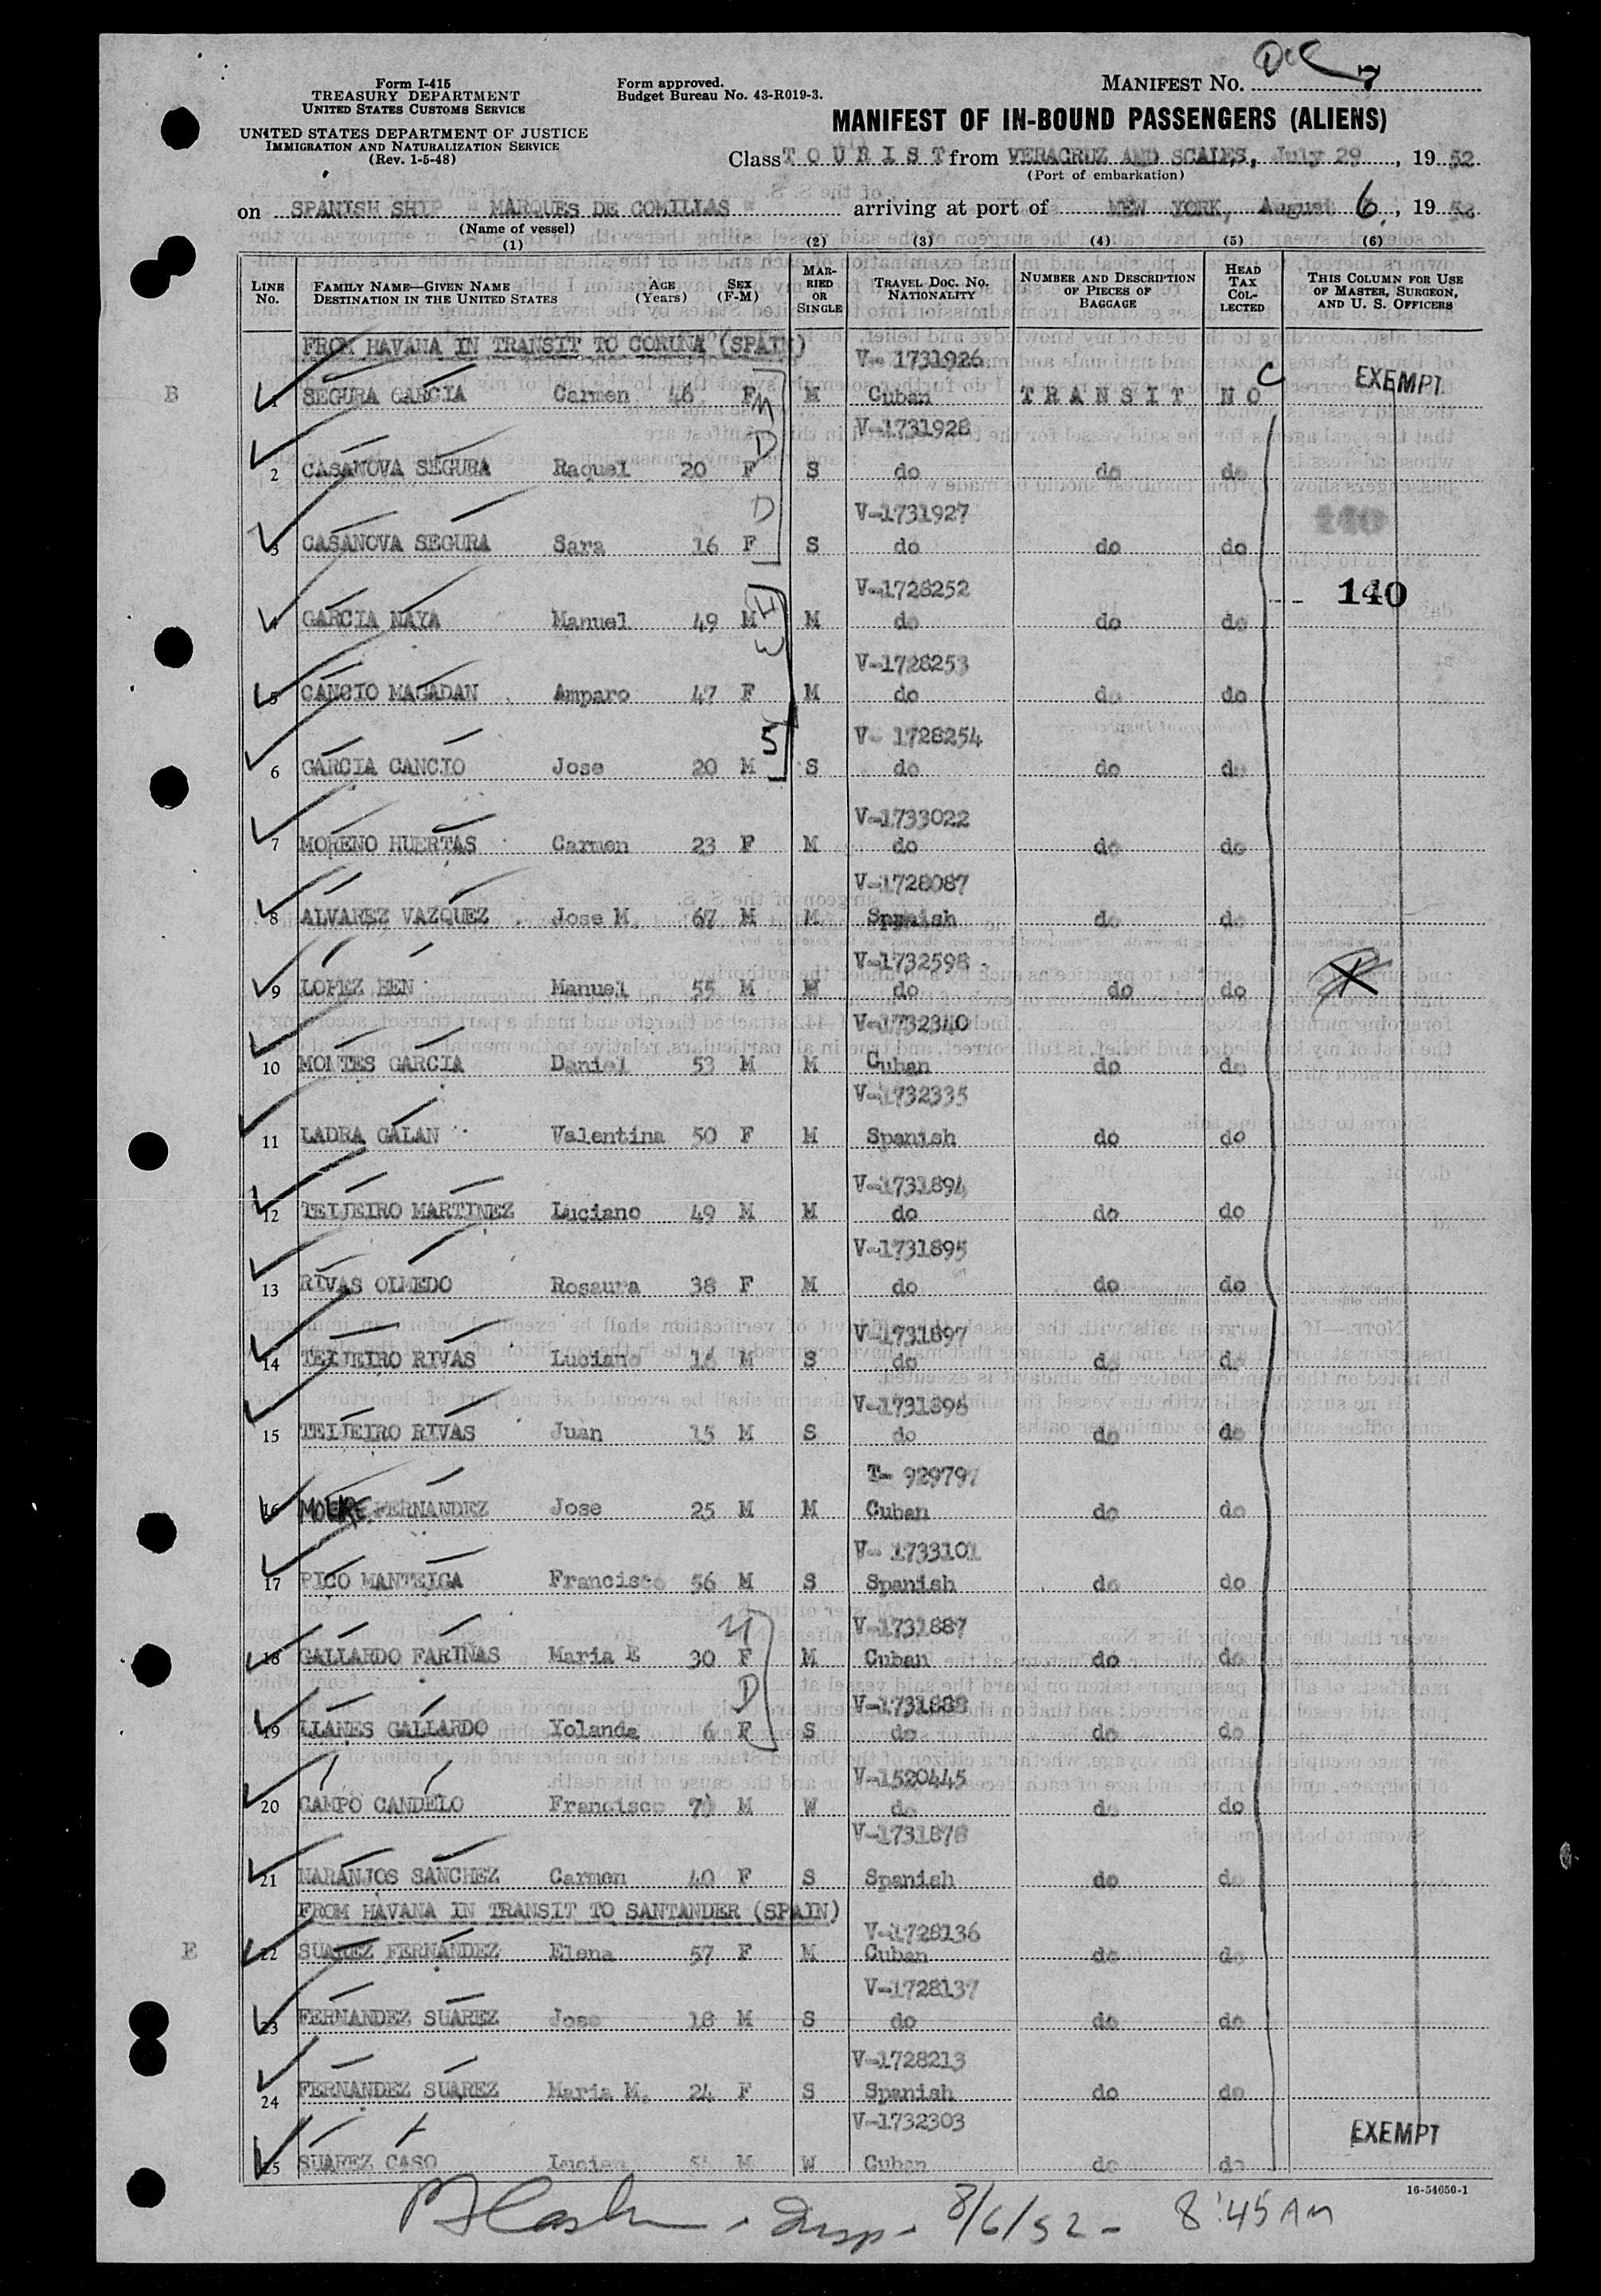 Form I-415
TREASURY DEPARTMENT
UNITED STATES CUSTOMS SERVICE
UNITED STATES DEPARTMENT OF JUSTICE
IMMIGRATION AND NATURALIZATION SERVICE
(Rev. 1-5-48)
Form approved.
Budget Bureau No. 43-R019-3.
MANIFEST No. 7
MANIFEST OF IN-BOUND PASSENGERS (ALIENS)
Class TOURIST from VERACRUZ AND SCALES, July 29, 1952
(Port of embarkation)
on SPANISH SHIP "MARQUES DE COMILLAS" arriving at port of NEW YORK, August 6, 1952
(Name of vessel)
(1) (2) (3) (4) (5) (6)
LINE No. FAMILY NAME—GIVEN NAME DESTINATION IN THE UNITED STATES AGE (Years) SEX (F-M) MARRIED OR SINGLE TRAVEL DOC. NO. NATIONALITY NUMBER AND DESCRIPTION OF PIECES OF BAGGAGE HEAD TAX COLLECTED THIS COLUMN FOR USE OF MASTER, SURGEON, AND U. S. OFFICERS
FROM HAVANA IN TRANSIT TO CORUNA (SPAIN)
V- 1731926
1 SEGURA GARCIA Carmen 46 F M Cuban TRANSIT NO EXEMPT
V-1731928
2 CASANOVA SEGURA Raquel 20 F S do do do
V-1731927
3 CASANOVA SEGURA Sara 16 F S do do do
140
V-1728252
4 GARCIA NAYA Manuel 49 M M do do do
V-1728253
5 CANCIO MAGADAN Amparo 47 F M do do do
V- 1728254
6 GARCIA CANCIO Jose 20 M S do do do
V-1733022
7 MORENO HUERTAS Carmen 23 F M do do do
V-1728087
8 ALVAREZ VAZQUEZ Jose M. 67 M M Spanish do do
V-1732598
9 LOPEZ BEN Manuel 55 M M do do do X
V-1732340
10 MONTES GARCIA Daniel 53 M M Cuban do do
V-1732335
11 LADRA GALAN Valentina 50 F M Spanish do do
V-1731894
12 TEIJEIRO MARTINEZ Luciano 49 M M do do do
V-1731895
13 RIVAS OLMEDO Rosaura 38 F M do do do
V-1731897
14 TEIJEIRO RIVAS Luciano 16 M S do do do
V-1731896
15 TEIJEIRO RIVAS Juan 15 M S do do do
T- 929797
16 MOURE FERNANDEZ Jose 25 M M Cuban do do
V- 1733101
17 PICO MANTEIGA Francisco 56 M S Spanish do do
V-1731887
18 GALLARDO FARIÑAS Maria E 30 F M Cuban do do
V-1731888
19 LLANES GALLARDO Yolanda 6 F S do do do
V-1520445
20 CAMPO CANDELO Francisco M W do do do
V-1731878
21 NARANJOS SANCHEZ Carmen 40 F S Spanish do do
FROM HAVANA IN TRANSIT TO SANTANDER (SPAIN)
V-1728136
22 SUAREZ FERNANDEZ Elena 57 F M Cuban do do
V-1728137
23 FERNANDEZ SUAREZ Jose 18 M S do do do
V-1728213
24 FERNANDEZ SUAREZ Maria M. 24 F S Spanish do do
V-1732303
25 SUAREZ CASO M W Cuban do do EXEMPT
16-54650-1
Insp. 8/6/52 - 8:45 AM